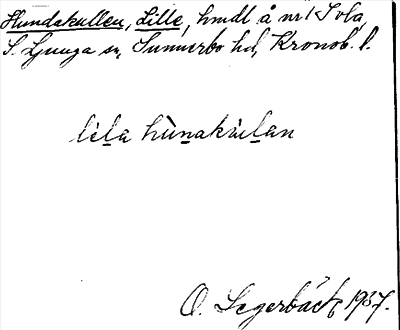 Hundakullen, Lille, hmdl å nr 1 Sola,
S. Ljunga sn, Sunnerbo hd, Kronob. l.
lìla hùnakùlan
O. Segerbäck 1937.